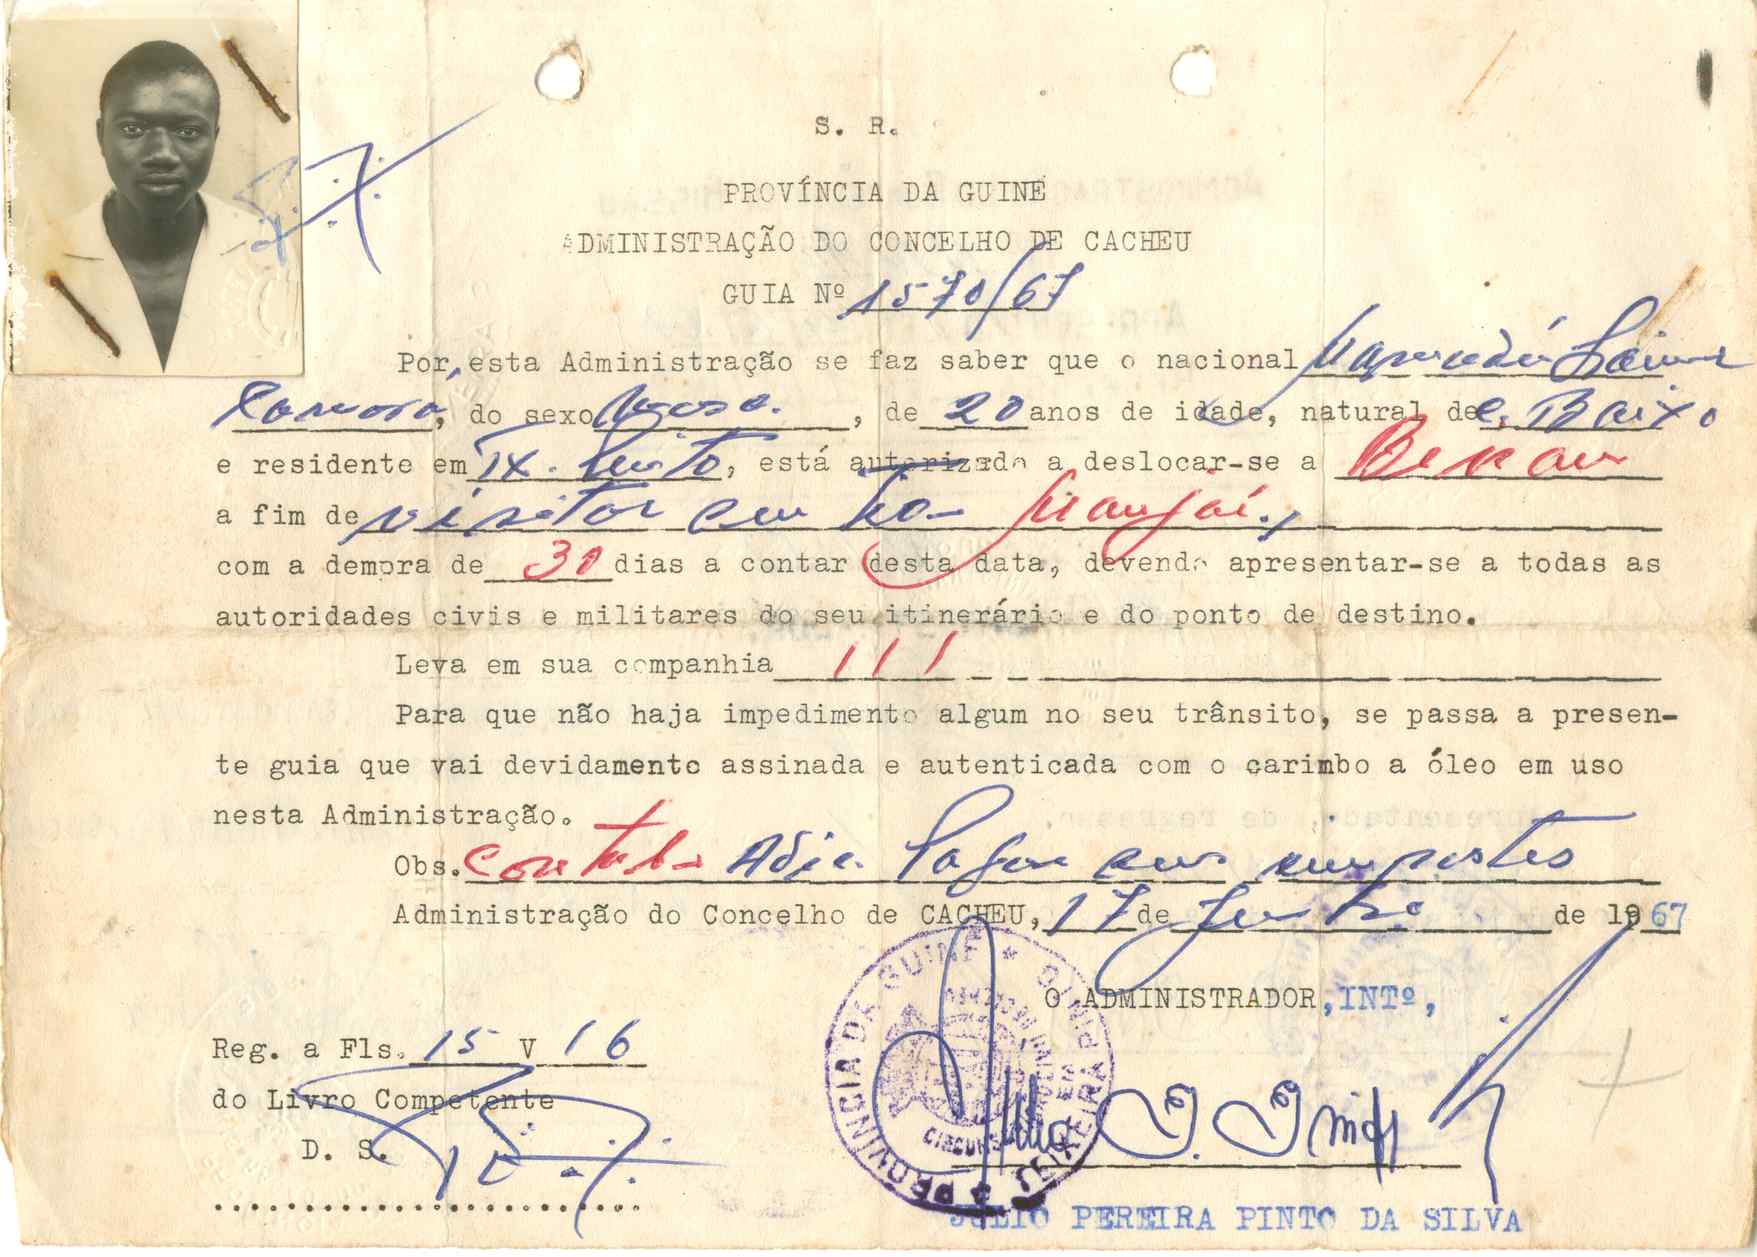 S. R.
PROVÍNCIA DA GUINÉ
ADMINISTRAÇÃO DO CONCELHO DE CACHEU
GUIA Nº 1570/67
Por, esta Administração se faz saber que o nacional Mamadú
Camara, do sexo Masc. , de 20 anos de idade, natural de C. Baixo
e residente em TX. Pinto, está autorizado a deslocar-se a Bissau
a fim de visitar seu tio
com a demora de 30 dias a contar desta data, devendo apresentar-se a todas as
autoridades civis e militares do seu itinerário e do ponto de destino.
Leva em sua companhia ///
Para que não haja impedimento algum no seu trânsito, se passa a presen-
te guia que vai devidamente assinada e autenticada com o carimbo a óleo em uso
nesta Administração.
Obs. impostos
Administração do Concelho de CACHEU, 17 de de 1967
O ADMINISTRADOR, INTº,
PROVÍNCIA DA GUINÉ
Reg. a Fls. 15 V 16
do Livro Competente
D. S.
JÚLIO PEREIRA PINTO DA SILVA